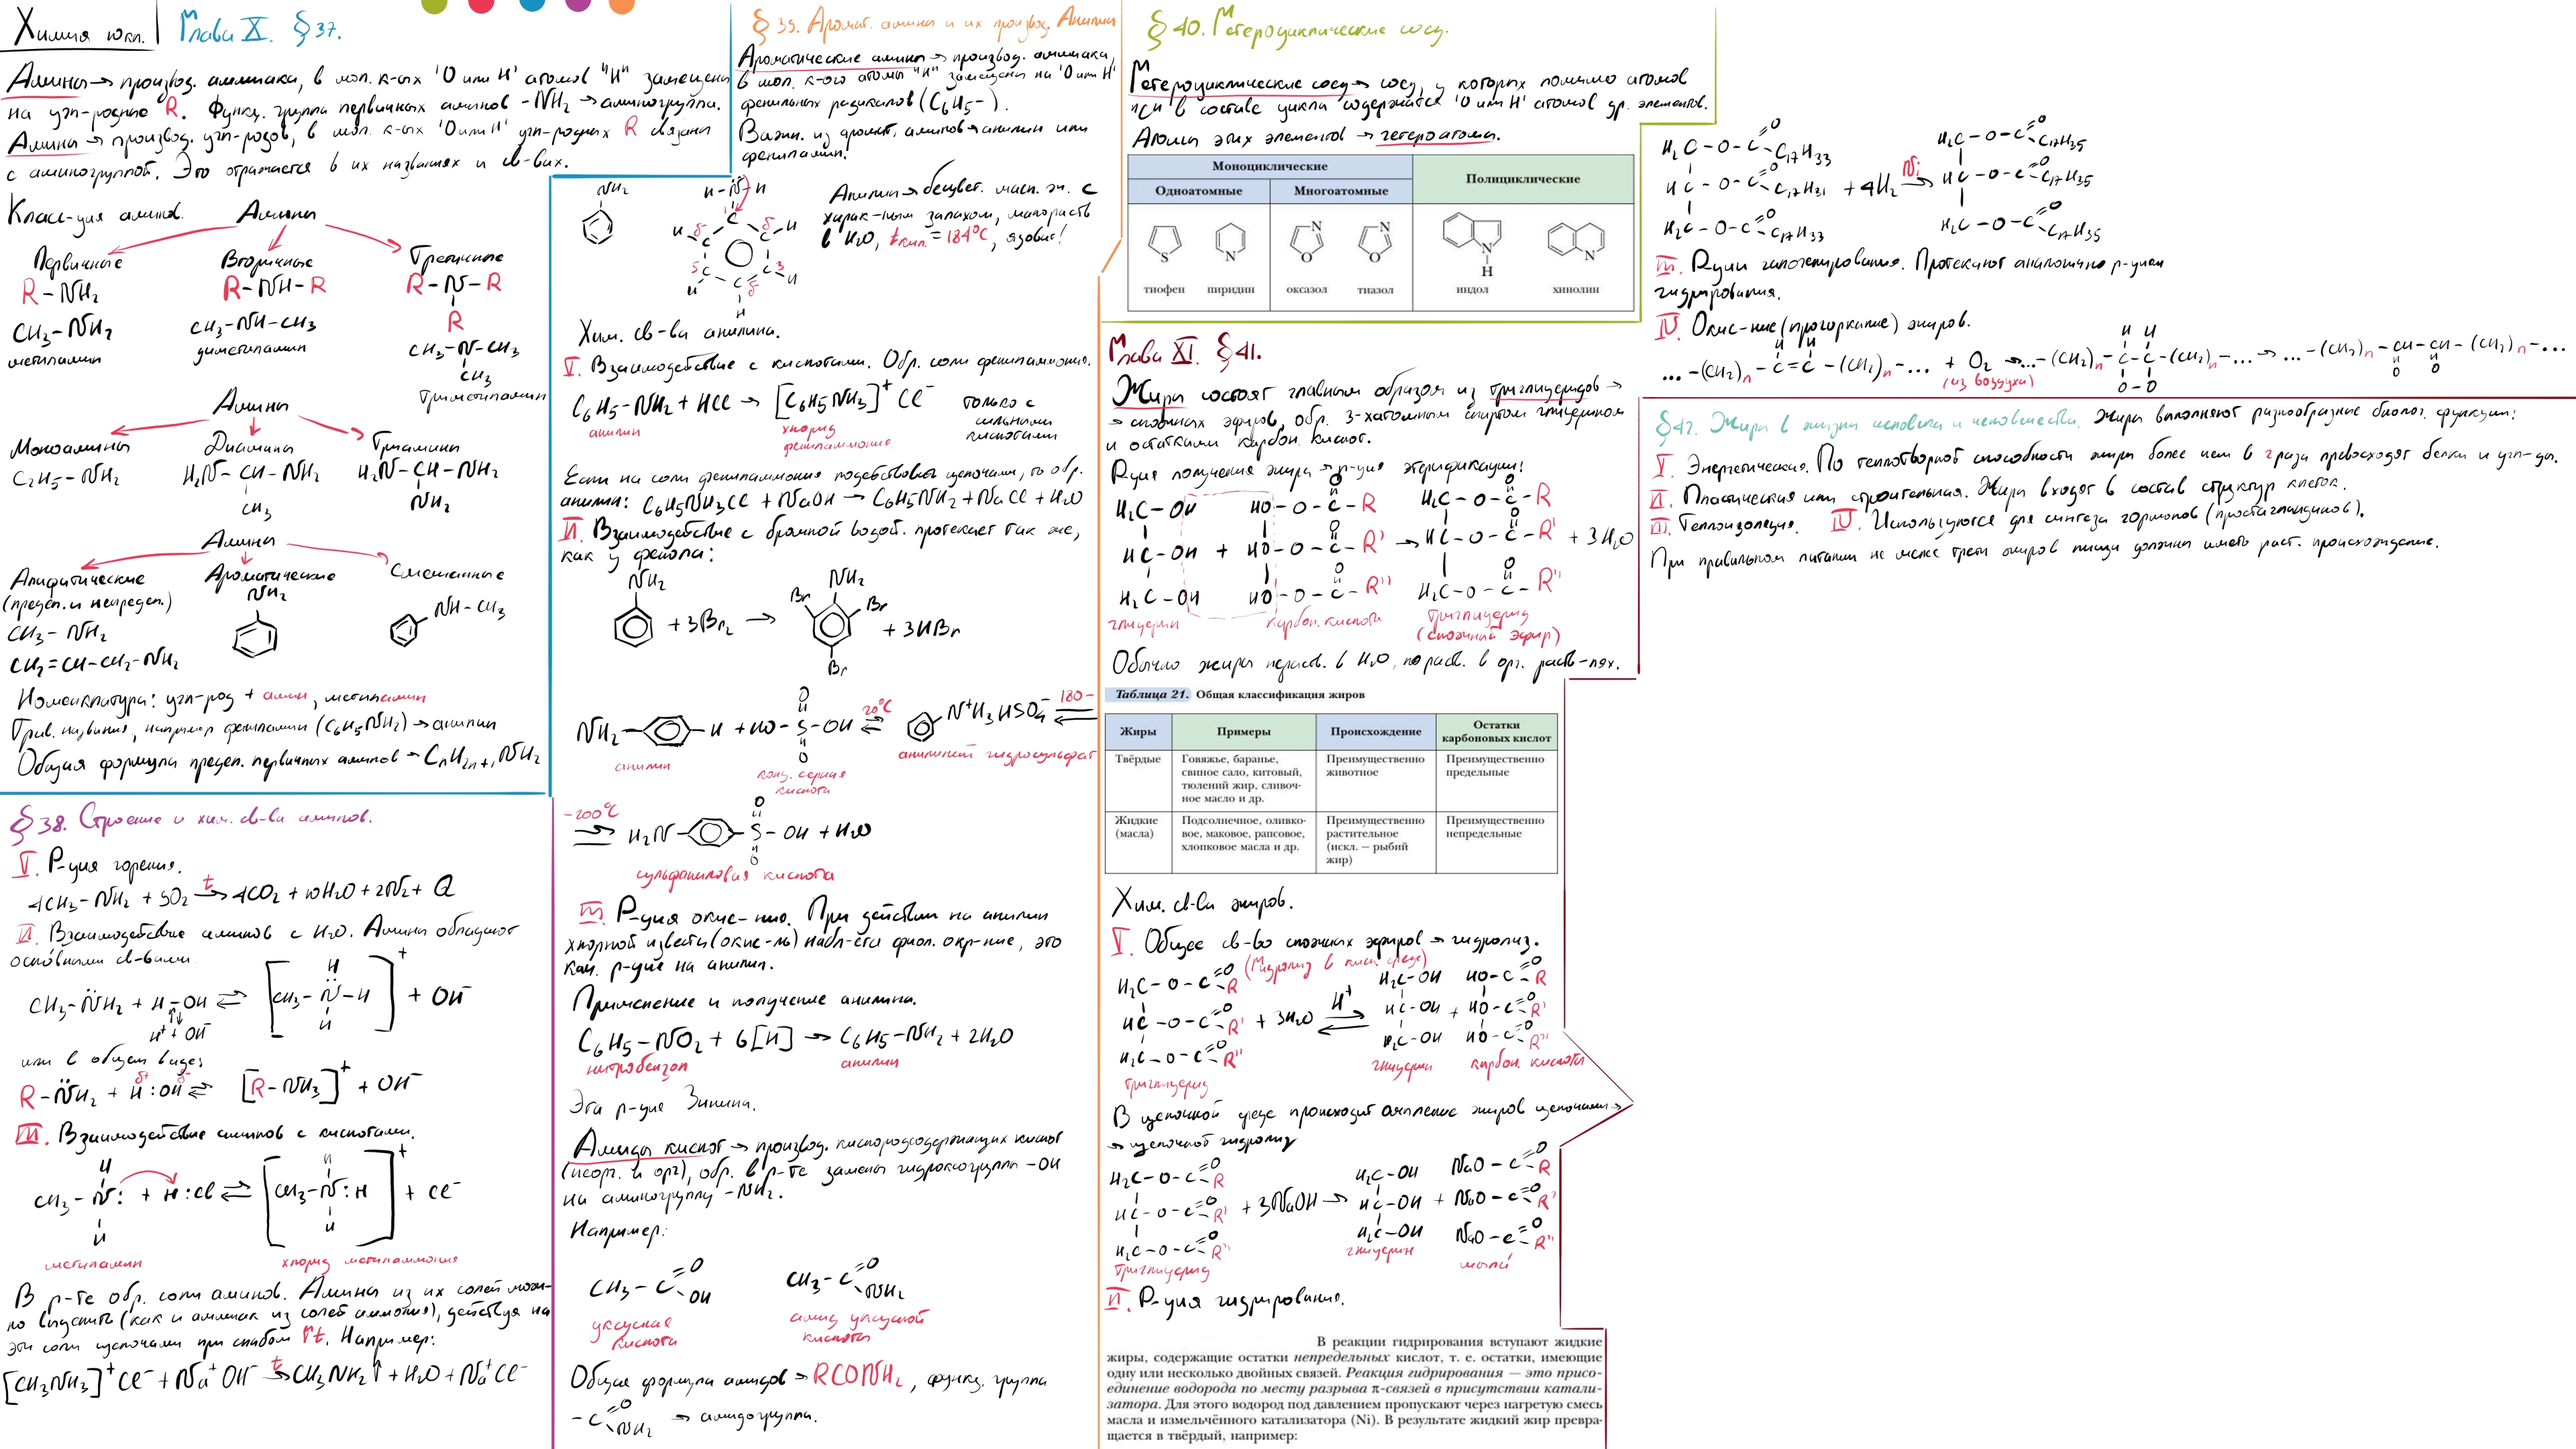 Химия 10кл. Глава X. § 37.
Амины → производ. аммиака, в мол. к-ых '0 или Н' атомов "Н" замещены
на угл-родные R. Функц. группа первичных аминов -NH₂ → аминогруппа.
Амины → производ. угл-родов, в мол. к-ых '0 или Н' угл-родных R связаны
с аминогруппой. Это отражается в их названиях и св-вах.
Класс-ция аминов.
Амины
Первичные Вторичные Третичные
R-NH₂ R-NH-R R-N-R
R
CH₃-NH₂ CH₃-NH-CH₃ CH₃-N-CH₃
CH₃
метиламин диметиламин триметиламин
Амины
Моноамины Диамины Триамины
C₂H₅-NH₂ H₂N-CH-NH₂ H₂N-CH-NH₂
CH₃ NH₂
Амины
Алифатические Ароматические Смешанные
(предел. и непредел.) NH₂ NH-CH₃
CH₃-NH₂
CH₂=CH-CH₂-NH₂
Номенклатура: угл-род + амин, метиламин
Трив. названия, например фениламин (C₆H₅NH₂) → анилин
Общая формула предел. первичных аминов - CₙH₂ₙ₊₁NH₂
§ 38. Строение и хим. св-ва аминов.
I. Р-ция горения.
4CH₃-NH₂ + 9O₂ →t 4CO₂ + 10H₂O + 2N₂ + Q
II. Взаимодействие аминов с H₂O. Амины обладают
осно́вными св-вами
CH₃-N̈H₂ + H-OH ⇌ [CH₃-N-H]⁺ + OH⁻
H
H
H⁺ + OH⁻
или в общем виде:
R-N̈H₂ + H:OH ⇌ [R-NH₃]⁺ + OH⁻
δ+ δ-
III. Взаимодействие аминов с кислотами.
CH₃-N: + H:Cl ⇌ [CH₃-N:H]⁺ + Cl⁻
H H
H H
метиламин хлорид метиламмония
В р-те обр. соли аминов. Амины из их солей мож-
но выделить (как и аммиак из солей аммония), действуя на
эти соли щелочами при слабом ↑t. Например:
[CH₃NH₃]⁺Cl⁻ + Na⁺OH⁻ →t CH₃NH₂↑ + H₂O + Na⁺Cl⁻
§ 39. Аромат. амины и их производ. Анилин
Ароматические амины → производ. аммиака,
в мол. к-ого атомы "Н" замещены на '0 или Н'
фенильных радикалов (C₆H₅-).
Важн. из аромат. аминов → анилин или
фениламин.
NH₂ H-N̈-H
C
H δ- C δ- C-H
C C-H
H δ- C
H
Анилин → бесцвет. масл. ж. с
харак-ным запахом, малораств
в H₂O, tкип. = 184°C, ядовит!
Хим. св-ва анилина.
I. Взаимодействие с кислотами. Обр. соли фениламмония.
C₆H₅-NH₂ + HCl → [C₆H₅NH₃]⁺Cl⁻ только с
сильными
кислотами
анилин хлорид
фениламмония
Если на соли фениламмония подействовать щелочами, то обр.
анилин: C₆H₅NH₃Cl + NaOH → C₆H₅NH₂ + NaCl + H₂O
II. Взаимодействие с бромной водой. протекает так же,
как у фенола:
NH₂ NH₂
Br Br
+ 3Br₂ → + 3HBr
Br
O
NH₂- -H + HO-S-OH ⇌ 20°C N⁺H₃HSO₄⁻ 180-
O
анилин конц. серная
кислота
анилиний гидросульфат
-200°C O
H₂N- -S-OH + H₂O
O
сульфаниловая кислота
III. Р-ция окис-ния. При действии на анилин
хлорной извести (окис-ль) набл-ется фиол. окр-ние, это
кач. р-ция на анилин.
Применение и получение анилина.
C₆H₅-NO₂ + 6[H] → C₆H₅-NH₂ + 2H₂O
нитробензол анилин
Эта р-ция Зинина.
Амиды кислот → производ. кислородсодержащих кислот
(неорг. и орг), обр. в р-те замены гидроксогруппы -OH
на аминогруппу -NH₂.
Например:
CH₃-C=O CH₃-C=O
OH NH₂
уксусная амид уксусной
кислота кислоты
Общая формула амидов → RCONH₂, функц. группа
-C=O → амидогруппа.
NH₂
§ 40. Гетероциклические соед.
Гетероциклические соед → соед, у которых помимо атомов
"С" в составе цикла содержатся '0 или Н' атомов др. элементов.
Атомы этих элементов → гетероатомы.
Моноциклические Полициклические
Одноатомные Многоатомные
S N N O N O N H N
тиофен пиридин оксазол тиазол индол хинолин
Глава XI. § 41.
Жиры состоят главным образом из триглицеридов →
→ сложных эфиров, обр. 3-хатомным спиртом глицерином
и остатками карбон. кислот.
Р-ция получения жира → р-ция этерификации!
H₂C-OH HO-O-C-R H₂C-O-C-R
HC-OH + HO-O-C-R' → HC-O-C-R' + 3H₂O
H₂C-OH HO-O-C-R'' H₂C-O-C-R''
глицерин карбон. кислота триглицерид
(сложный эфир)
Обычно жиры нераств. в H₂O, но раств. в орг. раств-лях.
Таблица 21. Общая классификация жиров
Жиры Примеры Происхождение Остатки карбоновых кислот
Твёрдые Говяжье, баранье, свиное сало, китовый, тюлений жир, сливочное масло и др. Преимущественно животное Преимущественно предельные
Жидкие (масла) Подсолнечное, оливковое, маковое, рапсовое, хлопковое масла и др. Преимущественно растительное (искл. — рыбий жир) Преимущественно непредельные
Хим. св-ва жиров.
I. Общее св-во сложных эфиров → гидролиз.
(Гидролиз в кисл. среде)
H₂C-O-C=O R H₂C-OH HO-C=O R
HC-O-C=O R' + 3H₂O ⇌ H⁺ HC-OH + HO-C=O R'
H₂C-O-C=O R'' H₂C-OH HO-C=O R''
триглицерид глицерин карбон. кислоты
В щелочной среде происходит омыление жиров щелочами →
→ щелочной гидролиз
H₂C-O-C=O R H₂C-OH NaO-C=O R
HC-O-C=O R' + 3NaOH → HC-OH + NaO-C=O R'
H₂C-O-C=O R'' H₂C-OH NaO-C=O R''
триглицерид глицерин мыла
II. Р-ция гидрирования.
В реакции гидрирования вступают жидкие
жиры, содержащие остатки непредельных кислот, т. е. остатки, имеющие
одну или несколько двойных связей. Реакция гидрирования — это присо-
единение водорода по месту разрыва π-связей в присутствии катали-
затора. Для этого водород под давлением пропускают через нагретую смесь
масла и измельчённого катализатора (Ni). В результате жидкий жир превра-
щается в твёрдый, например:
H₂C-O-C=O C₁₇H₃₃ H₂C-O-C=O C₁₇H₃₅
HC-O-C=O C₁₇H₃₁ + 4H₂ →Ni HC-O-C=O C₁₇H₃₅
H₂C-O-C=O C₁₇H₃₃ H₂C-O-C=O C₁₇H₃₅
III. Р-ции галогенирования. Протекают аналогично р-циям
гидрирования.
IV. Окис-ние (прогоркание) жиров.
H H H H
...-(CH₂)n-C=C-(CH₂)n-... + O₂ → ...-(CH₂)n-C-C-(CH₂)n-... → ...-(CH₂)n-CH-CH-(CH₂)n-...
(из воздуха) O-O O O
§ 42. Жиры в жизни человека и человечества. Жиры выполняют разнообразные биолог. функции:
I. Энергетическая. По теплотворной способности жиры более чем в 2 раза превосходят белки и угл-ды.
II. Пластическая или строительная. Жиры входят в состав структур клеток.
III. Теплоизоляция. IV. Используются для синтеза гормонов (простагландинов).
При правильном питании не менее трети жиров пищи должны иметь раст. происхождение.